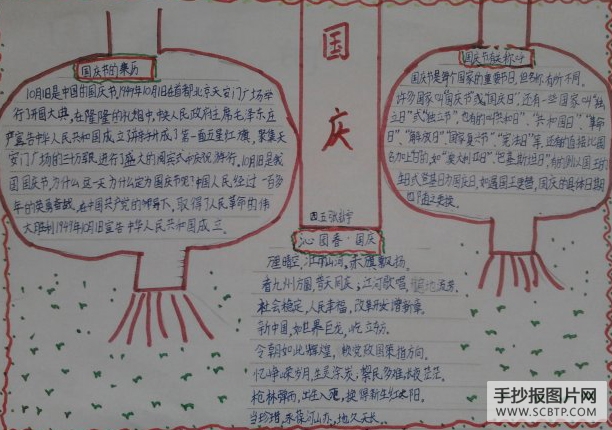 国庆
国庆节的来历
10月1日是中国的国庆节,1949年10月1日在首都北京天安门广场举
行了开国大典,在隆隆的礼炮中,中央人民政府主席毛泽东庄
严宣告中华人民共和国成立并升了第一面五星红旗,聚集天
安门广场的三十万军民进行了盛大的阅兵式和庆祝游行。10月1日是我
国国庆节,为什么这一天为什么定为国庆节呢?中国人民经过一百多
年的英勇奋战,在中国共产党的领导下,取得了人民革命的伟
大胜利1949年10月1日宣告中华人民共和国成立。
国庆节有关称呼
国庆节是每个国家的重要节日,但名称有所不同。
许多国家叫"国庆节"或"国庆日",还有一些国家叫"独
立日"或"独立节",也有的叫"共和日"、"共和国日"、"革命
日"、"解放日""国家复兴节"、"宪法日"等,还有直接以国
名加上"日"的,如"澳大利亚日""巴基斯坦日"有的则以国王的
生日或登基日为国庆日,如遇国王更替,国庆的具体日期
也随之更换。
四五
沁园春·国庆
看九州方圆,普天同庆;江河歌唱,
社会稳定,人民幸福,改革开放谱新章。
新中国,如世界巨龙,屹立东方。
今朝如此辉煌,赖党政国策指方向。
忆峥嵘岁月,生灵涂炭,黎民多难,长夜茫茫。
枪林弹雨,出生入死,换得新生红太阳。
当珍惜,永葆河山,地久天长。
手抄报图片网
WWW.SCBTP.COM